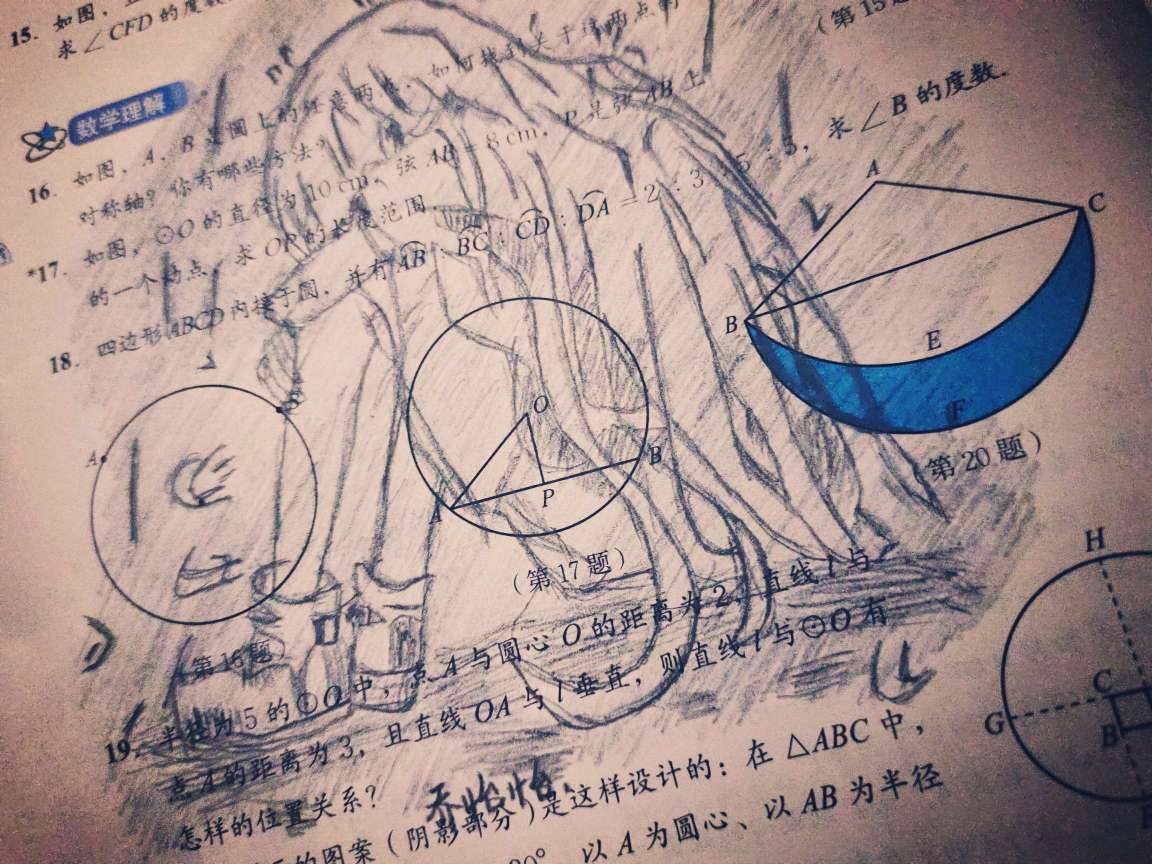 15. 如图,
求∠CFD的度数
(第15题
数学理解
16. 如图, A、B是圆上的任意两点, 如何找到关于这两点的
对称轴? 你有哪些方法?
*17. 如图, ⊙O的直径为10 cm, 弦AB=8 cm, P是弦AB上
的一个动点, 求OP的长度范围.
18. 四边形ABCD内接于圆, 并有AB:BC:CD:DA=2:3:5, 求∠B的度数.
A
C
B
E
F
(第20题)
A
(第16题)
O
A
P
B
(第17题)
H
G
C
B
19. 半径为5的⊙O中, 点A与圆心O的距离为2, 直线l与
点A的距离为3, 且直线OA与l垂直, 则直线l与⊙O有
怎样的位置关系?
的图案(阴影部分)是这样设计的: 在△ABC中,
以A为圆心、以AB为半径